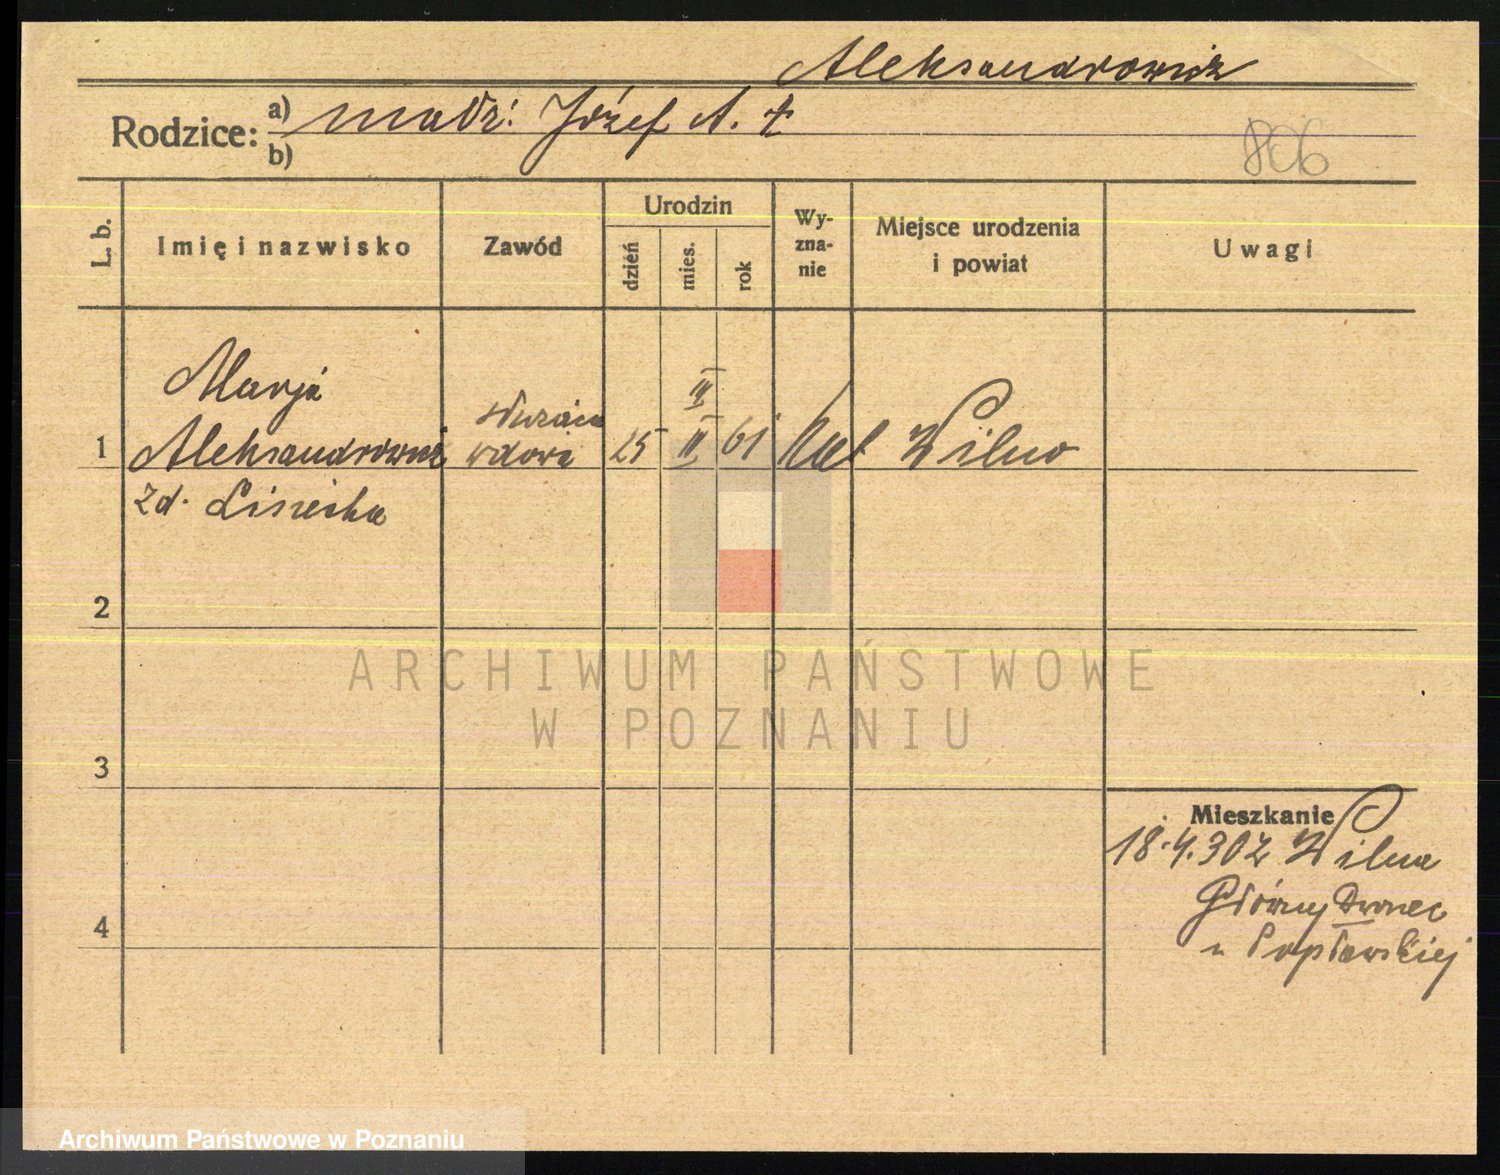 Aleksandrowicz
Rodzice: a) małż: Józef A. +
b)
806
L. b.
Imię i nazwisko
Zawód
Urodzin
dzień
mies.
rok
Wy-
zna-
nie
Miejsce urodzenia
i powiat
Uwagi
Marja
III
1 Aleksandrowicz wdowa 25 II 61 Kat Wilno
zd.
2
ARCHIWUM PAŃSTWOWE
W POZNANIU
3
Mieszkanie
18.4.30 z Wilna
Główny Dworzec
u Popławskiej
4
Archiwum Państwowe w Poznaniu